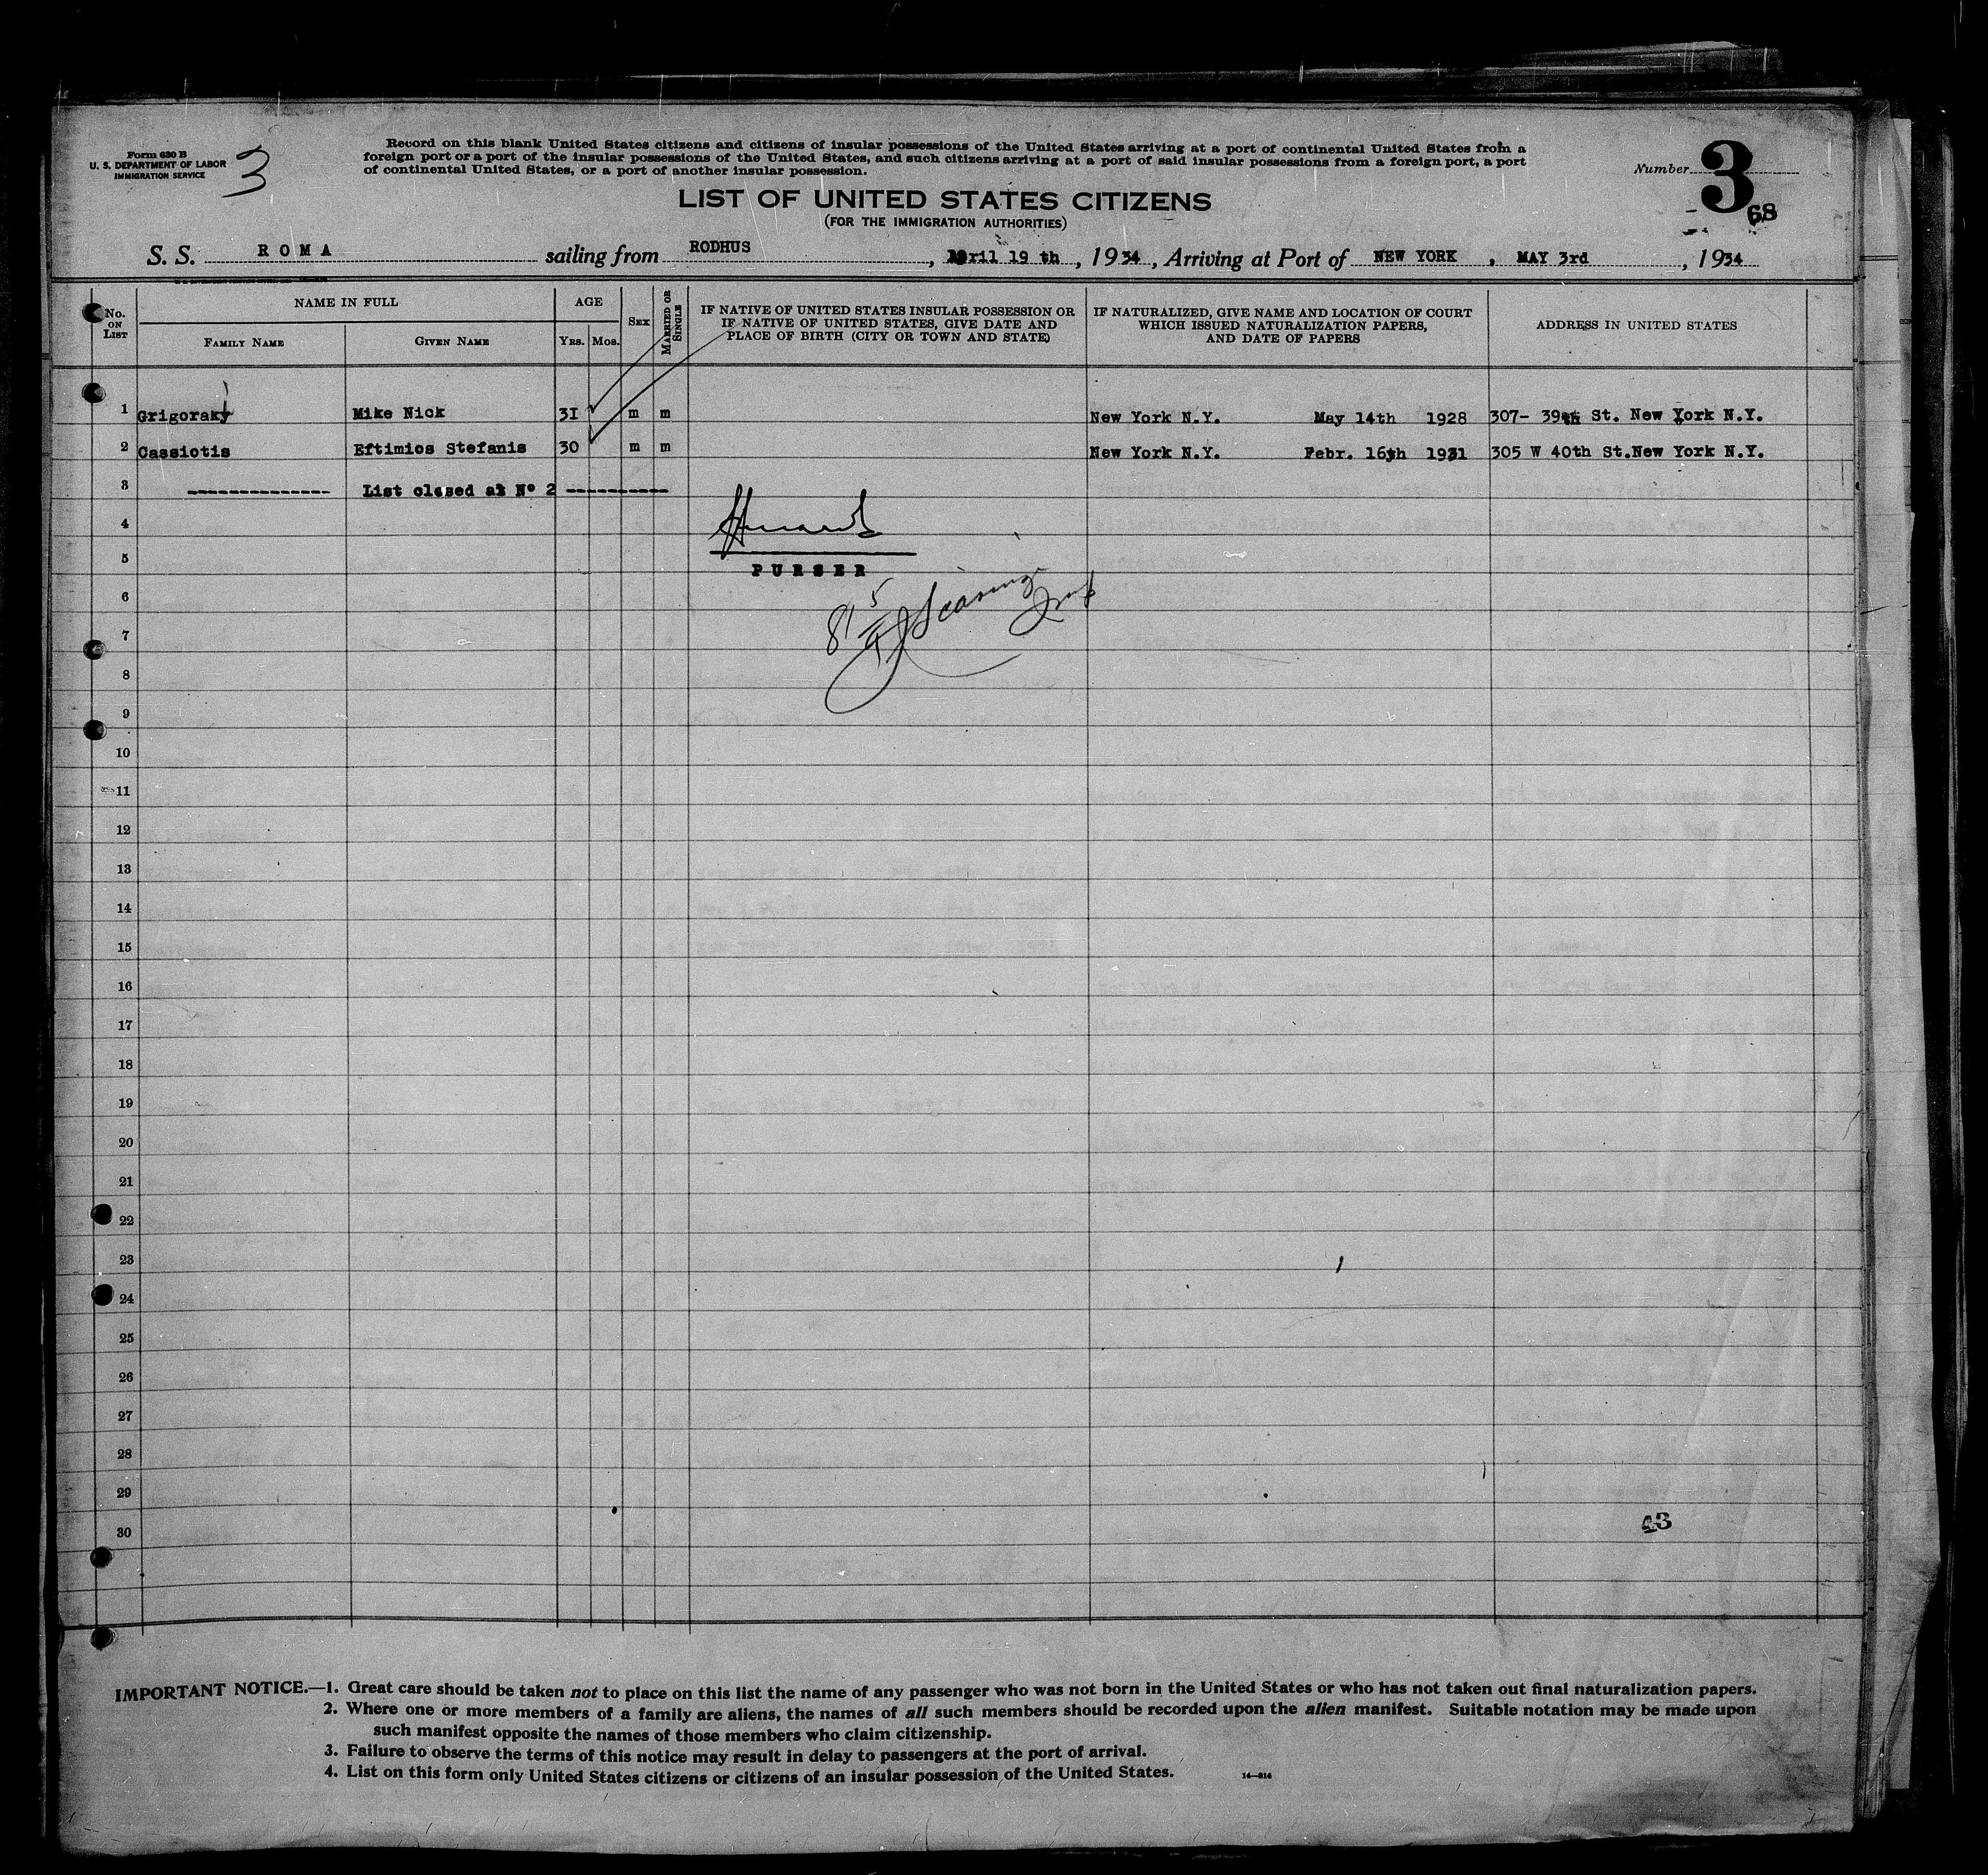 Form 630 B
U. S. DEPARTMENT OF LABOR
IMMIGRATION SERVICE
3
Record on this blank United States citizens and citizens of insular possessions of the United States arriving at a port of continental United States from a
foreign port or a port of the insular possessions of the United States, and such citizens arriving at a port of said insular possessions from a foreign port, a port
of continental United States, or a port of another insular possession.
Number 3
68
LIST OF UNITED STATES CITIZENS
(FOR THE IMMIGRATION AUTHORITIES)
S. S. ROMA sailing from RODHUS, April 19 th, 1934, Arriving at Port of NEW YORK, MAY 3rd, 1934
No. ON LIST
NAME IN FULL
FAMILY NAME
GIVEN NAME
AGE
YRS. MOS.
SEX
MARRIED OR SINGLE
IF NATIVE OF UNITED STATES INSULAR POSSESSION OR
IF NATIVE OF UNITED STATES, GIVE DATE AND
PLACE OF BIRTH (CITY OR TOWN AND STATE)
IF NATURALIZED, GIVE NAME AND LOCATION OF COURT
WHICH ISSUED NATURALIZATION PAPERS,
AND DATE OF PAPERS
ADDRESS IN UNITED STATES
1 Grigoraky Mike Nick 3I m m New York N.Y. May 14th 1928 307- 39th St. New York N.Y.
2 Cassiotis Eftimios Stefanis 30 m m New York N.Y. Febr. 16th 1931 305 W 40th St.New York N.Y.
3 -------------- List closed at Nº 2 ----------
4
5
PURSER
6
7
8
9
10
11
12
13
14
15
16
17
18
19
20
21
22
23
24
25
26
27
28
29
30
43
IMPORTANT NOTICE.—1. Great care should be taken not to place on this list the name of any passenger who was not born in the United States or who has not taken out final naturalization papers.
2. Where one or more members of a family are aliens, the names of all such members should be recorded upon the alien manifest. Suitable notation may be made upon
such manifest opposite the names of those members who claim citizenship.
3. Failure to observe the terms of this notice may result in delay to passengers at the port of arrival.
4. List on this form only United States citizens or citizens of an insular possession of the United States.
14—814